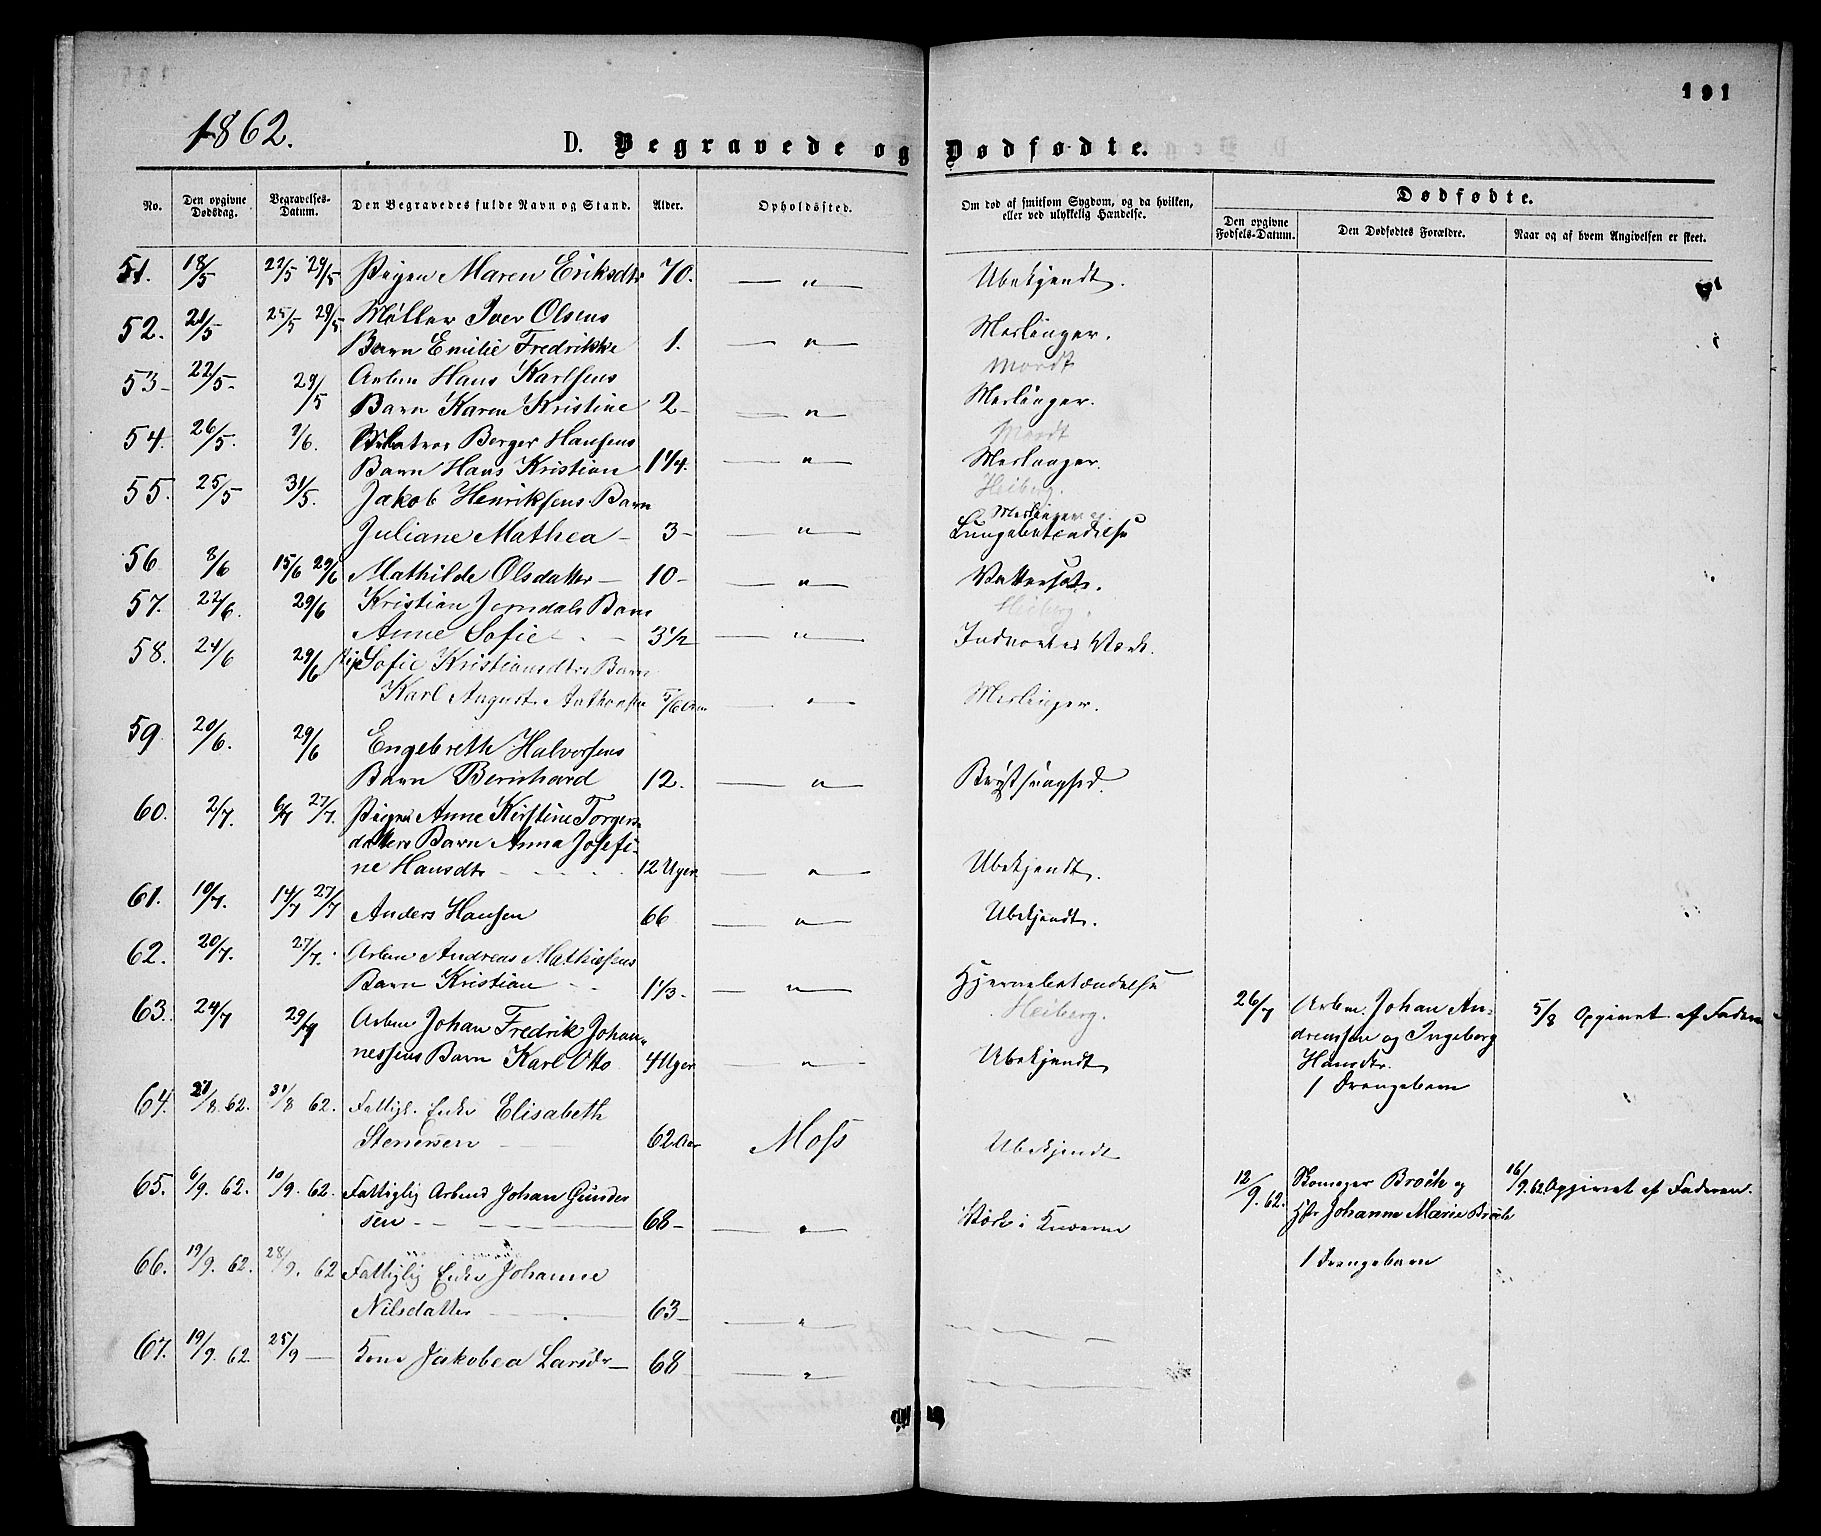 191
1862.
D. Begravede og Dødfødte.
No. Den opgivne Dødsdag. Begravelses-Datum. Den Begravedes fulde Navn og Stand. Alder. Opholdssted. Om død af smitsom Sygdom, og da hvilken, eller ved ulykkelig Hændelse. Dødfødte.
Den opgivne Fødsels-Datum. Den Dødfødtes Forældre. Naar og af hvem Angivelsen er skeet.
51. 18/5 22/5 29/5 Pigen Maren Eriksdtr 70. — " — Ubekjendt.
52. 21/5 25/5 29/5 Møller Iver Olsens
Barn Emilie Fredrikke 1. — " — Meslinger.
Mordt
53- 22/5- 29/5 Arbm Hans Karlsens
Barn Karen Kristine 2- — " — Meslinger.
Mordt
54. 26/5. 1/6. Berger Hansens
Barn Hans Kristian 1 1/4. — " — Meslinger.
Heiberg.
55. 25/5 31/5. Jakob Henriksens Barn
Juliane Mathea - 3- — " — Meslinger og
Lungebetændelse
56 8/6 15/6 29/6 Mathilde Olsdatter — 10- — " — Vattersot.
Heiberg.
57. 22/6. 29/6 Kristian Barn
Anne Sofie - 3 1/2 — " — Indvortes Værk.
58. 24/6 29/6 Pig. Sofie Kristiansdtr Barn
Karl August Anthonsen 5/6 — " — Meslinger.
59 20/6. 29/6 Engebreth Halvorsens
Barn Bernhard 12. — " — Brystsvaghed.
60. 2/7. 6/7 27/7. Pigen Anne Kirstine Torgers-
datters Barn Anna Josefi-
ne Hansdtr 12 Uger — " — Ubekjendt.
61. 10/7. 14/7 27/7 Anders Hansen 66 — " — Ubekjendt.
62. 20/7. 27/7. Arbm Andreas Mathiesens
Barn Kristian 1 1/3. — " — Hjernebetændelse
Heiberg.
63. 24/7 29/7 Arbm Johan Fredrik Johan-
nessens Barn Karl Otto 4 Uger — " — Ubekjendt
26/7 Arbm. Johan An-
dreassen og Ingeborg
Hansdtr.
1 Drengebarn
5/8 Opgivet af Faderen
64. 21/8. 62. 31/8 62. Fattigl. Enke Elisabeth
Stenersen 62 Aar Moss Ubekjendt
65. 6/9. 62. 10/9. 62. Fattiglig Arbmd Johan Gunder
sen 68- — " — Værk i Knæerne
12/9. 62. Skomager Broch og
Hstr Johanne Marie Broch
1 Drengebarn
16/9. 62. Opgivet af Faderen.
66. 19/9. 62. 28/9. 62 Fattiglig Enke Johanne
Nilsdatter 63- — " —
67. 19/9. 62. 25/9 — Kone Jakobea Larsdr 68 — " —